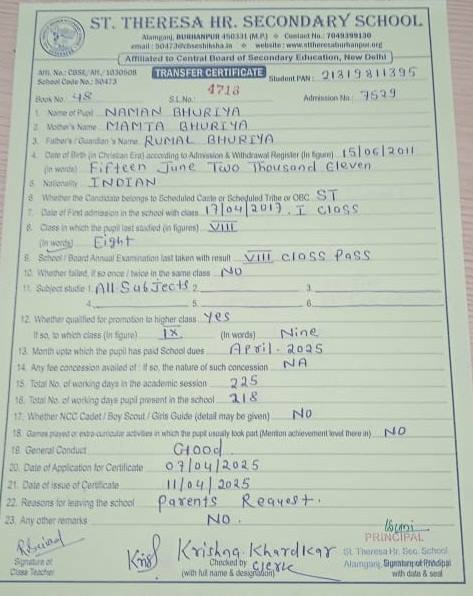 ST. THERESA HR. SECONDARY SCHOOL
Alamganj, BURHANPUR 450331 (M.P.) Contact No.: 7049399130
email : 50473@cbseshiksha.in website : www.sttheresaburhanpur.org
Affiliated to Central Board of Secondary Education, New Delhi
Affi. No.: CBSE/Aff./1030508 TRANSFER CERTIFICATE Student PAN : 21319811395
School Code No.: 50473
Book No. 48 S.L.No.: 4718 Admission No.: 7529
1. Name of Pupil NAMAN BHURIYA
2. Mother's Name MAMTA BHURIYA
3. Father's / Guardian's Name RUMAL BHURIYA
4. Date of Birth (in Christian Era) according to Admission & Withdrawal Register (In figure) 15/06/2011
(in words) Fifteen June Two Thousand Eleven
5. Nationality INDIAN
6. Whether the Candidate belongs to Scheduled Caste or Scheduled Tribe or OBC ST
7. Date of First admission in the school with class 17/04/2017. I Class
8. Class in which the pupil last studied (in figures) VIII
(In words) Eight
9. School / Board Annual Examination last taken with result VIII class Pass
10. Whether failed, if so once / twice in the same class NO
11. Subject studie 1. All Subjects 2. 3.
4. 5. 6.
12. Whether qualified for promotion to higher class Yes
If so, to which class (in figure) IX (In words) Nine
13. Month upto which the pupil has paid School dues April - 2025
14. Any fee concession availed of : If so, the nature of such concession NA
15. Total No. of working days in the academic session 225
16. Total No. of working days pupil present in the school 218
17. Whether NCC Cadet / Boy Scout / Girls Guide (detail may be given) NO
18. Games played or extra-curricular activities in which the pupil usually took part (Mention achievement level there in) NO
19. General Conduct Good
20. Date of Application for Certificate 07/04/2025
21. Date of issue of Certificate 11/04/2025
22. Reasons for leaving the school Parents Request.
23. Any other remarks NO.
PRINCIPAL
Krishna Khardkar St. Theresa Hr. Sec. School
Signature of Checked by Clerk Alamganj, Signature of Principal
Class Teacher (with full name & designation) with date & seal